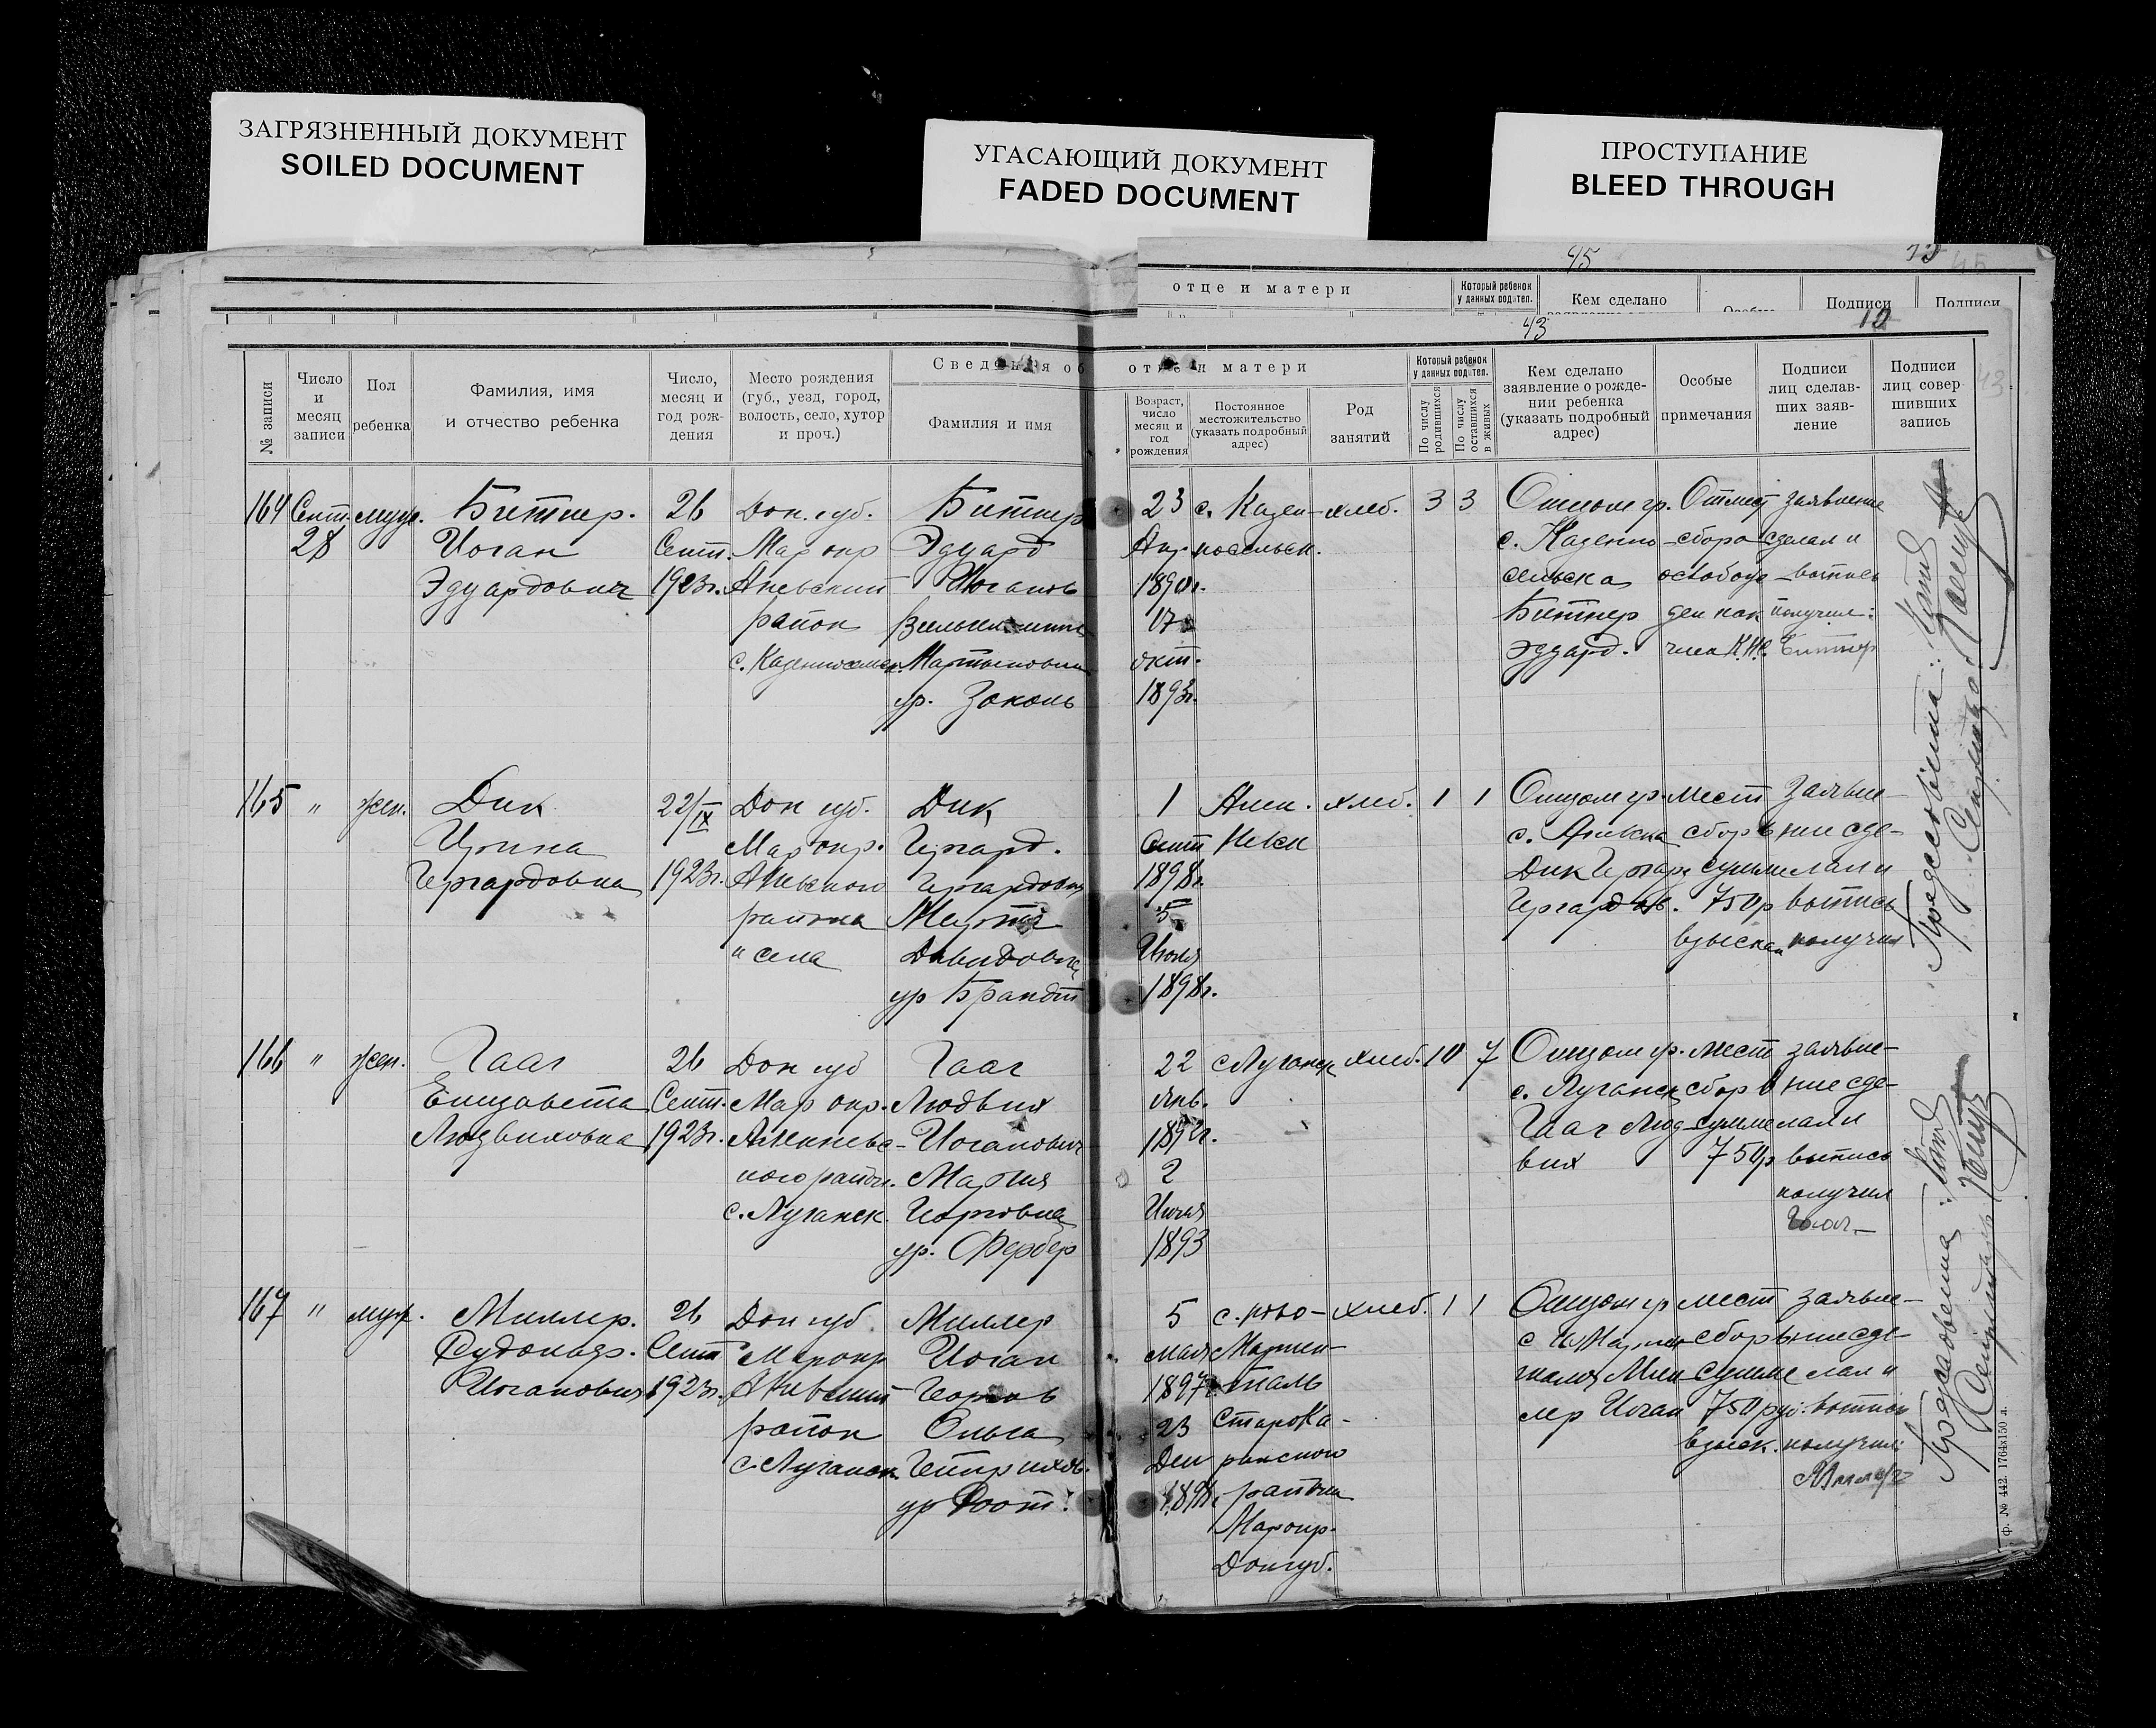 ЗАГРЯЗНЕННЫЙ ДОКУМЕНТ
SOILED DOCUMENT
УГАСАЮЩИЙ ДОКУМЕНТ
FADED DOCUMENT
ПРОСТУПАНИЕ
BLEED THROUGH
45
отце и матери
Который ребенок
у данных родител.
Кем сделано
Подписи
Подписи
43
№ записи
Число
и
месяц
записи
Пол
ребенка
Фамилия, имя
и отчество ребенка
Число,
месяц и
год рож-
дения
Место рождения
(губ., уезд, город,
волость, село, хутор
и проч.)
Сведения об отце и матери
Фамилия и имя
Возраст,
число
месяц и
год
рождения
Постоянное
местожительство
(указать подробный
адрес)
Род
занятий
Который ребенок
у данных родител.
По числу
родившихся
По числу
оставшихся
в живых
Кем сделано
заявление о рожде-
нии ребенка
(указать подробный
адрес)
Особые
примечания
Подписи
лиц сделав-
ших заяв-
ление
Подписи
лиц совер-
шивших
запись
164
Сент.
28
муж.
Битнер.
Иоган
Эдуардович
26
Сент.
1923г.
Дон. губ.
Мар окр
Акевский
район
с. Казенносельс.
Битнер
Эдуард
Иоганов
Вильгельмина
Мартыновна
ур. Зоколь
23
Ап.
1890г.
17
окт.
1893г.
с. Казен-
носельск.
хлеб.
3 3
Отцом гр.
с. Казенно-
сельска
Битнер
Эдуард.
От мест
сбора
освобож-
ден как
член К.Н.С.
Заявление
сделал и
выпись
получил:
Битнер
165
"
жен.
Дик
Ирина
Гергардовна
22/IX
1923г.
Дон губ.
Мар окр.
Акевского
района
" села
Дик
Гергард.
Гергардович
Марта
Давидовна
ур Брандт
1
Сент
1898г.
5
Июля
1898г.
хлеб.
1 1
Отцом гр.
Дик Гергард
Гергардов.
Мест
сбор в
сумме
750р
взыскан
Заявле-
ние сде-
лал и
выпись
получил
166
"
жен.
Гааг
Елизавета
Людвиховна
26
Сент.
1923г.
Дон губ
Мар окр.
ного район.
с. Луганск.
Гааг
Людвих
Иоганович
Мария
Георговна
ур. Фербер
22
Янв.
2
Июля
1893
с Луганск
хлеб.
10 7
Отцом гр.
с. Луганск
Гааг Люд-
вих
Мест
сбор в
сумме
750р
заявле-
ние сде-
лал и
выпись
получил
Гааг
167
"
муж.
Миллер.
Рудольф.
Иоганович
26
Сент
1923г.
Дон губ.
Мар окр
Акевский
район
с. Луганск
Миллер
Иоган
Георгов
Ольга
Генрихов.
ур Роот.
5
мая
1897г.
23
Дек
1898г.
с. Ново-
Мариен-
таль
СтароКа-
ранского
района
Марокр.
Донгуб.
хлеб.
1 1
Отцом гр
таля Мил-
лер Иоган
мест
сбор в
сумме
750 руб.
взыск.
заявле-
ние сде-
лал и
выпись
получил:
Миллер
Ф. № 442. 1764х150 л.